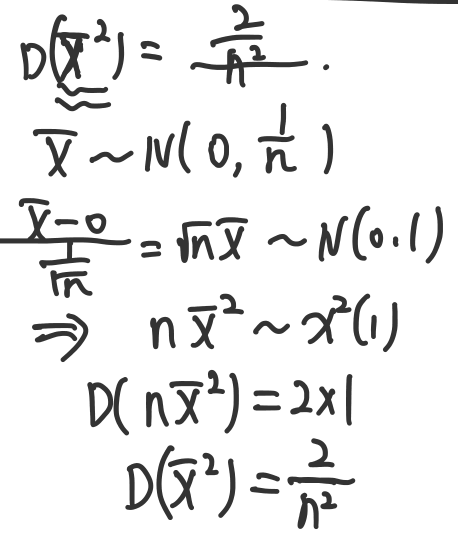 D(X̄²) = 2/n² .
X̄ ~ N( 0, 1/n )
(X̄ - 0)/(1/√n) = √n X̄ ~ N(0.1)
⇒ n X̄² ~ χ²(1)
D( n X̄² ) = 2×1
D(X̄²) = 2/n²